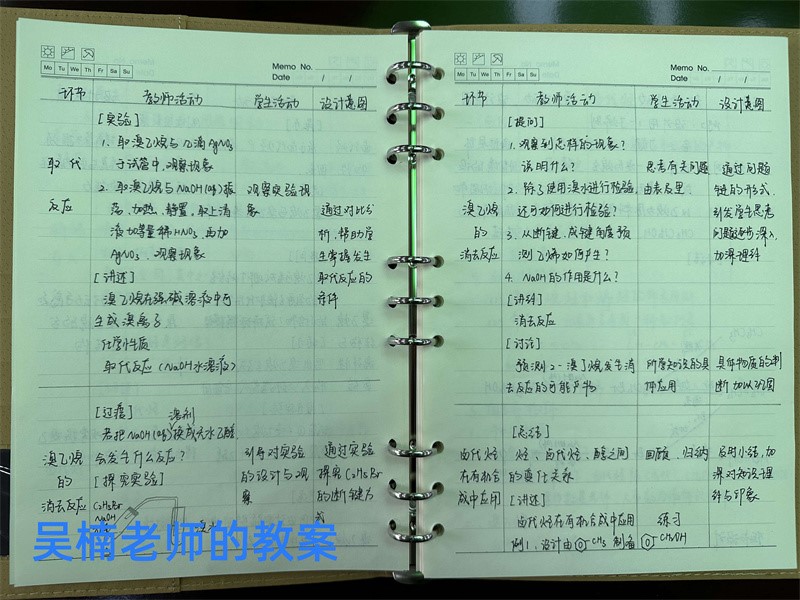 Memo No.
Mo Tu We Th Fr Sa Su
Date / /
环节 教师活动 学生活动 设计意图
[实验]
1. 取溴乙烷与几滴AgNO₃
取代 于试管中,观察现象
2. 取溴乙烷与NaOH(aq)振 观察实验现
反应 荡、加热、静置。取上清 象 通过对比分
液加等量稀HNO₃ 再加 析,帮助学
AgNO₃、观察现象 生掌握发生
[讲述] 取代反应的
溴乙烷在强碱溶液中可 条件
生成溴离子
化学性质
取代反应(NaOH水溶液)
[过渡] 溶剂
若把NaOH(aq)换成无水乙醇,
溴乙烷 会发生什么反应? 引导对实验 通过实验
的 [探究实验] 的设计与观 探究C₂H₅Br
消去反应 C₂H₅Br 察 的断键方
NaOH 式
吴楠老师的教案
Memo No.
Mo Tu We Th Fr Sa Su
Date / /
环节 教师活动 学生活动 设计意图
[提问]
1. 观察到怎样的现象?
说明什么? 思考有关问题 通过问题
2. 除了使用溴水进行检验 由表及里 链的形式,
溴乙烷 还可如何进行检验? 引发学生思考
的 3. 从断键、成键角度预 问题逐步深入,
消去反应 测乙烯如何产生? 加深理解
4. NaOH的作用是什么?
[讲解]
消去反应
[讨论]
预测2-溴丁烷发生消 所学知识的具 具体物质的判
去反应的可能产物 体应用 断加以巩固
[总结]
卤代烃 烃、卤代烃、醇之间 回顾、归纳 及时小结,加
在有机合 的转化关系 深对知识理
成中应用 [讲述] 解与印象
卤代烃在有机合成中应用 练习
例1、设计由 CH₃ 制备 CH₂OH